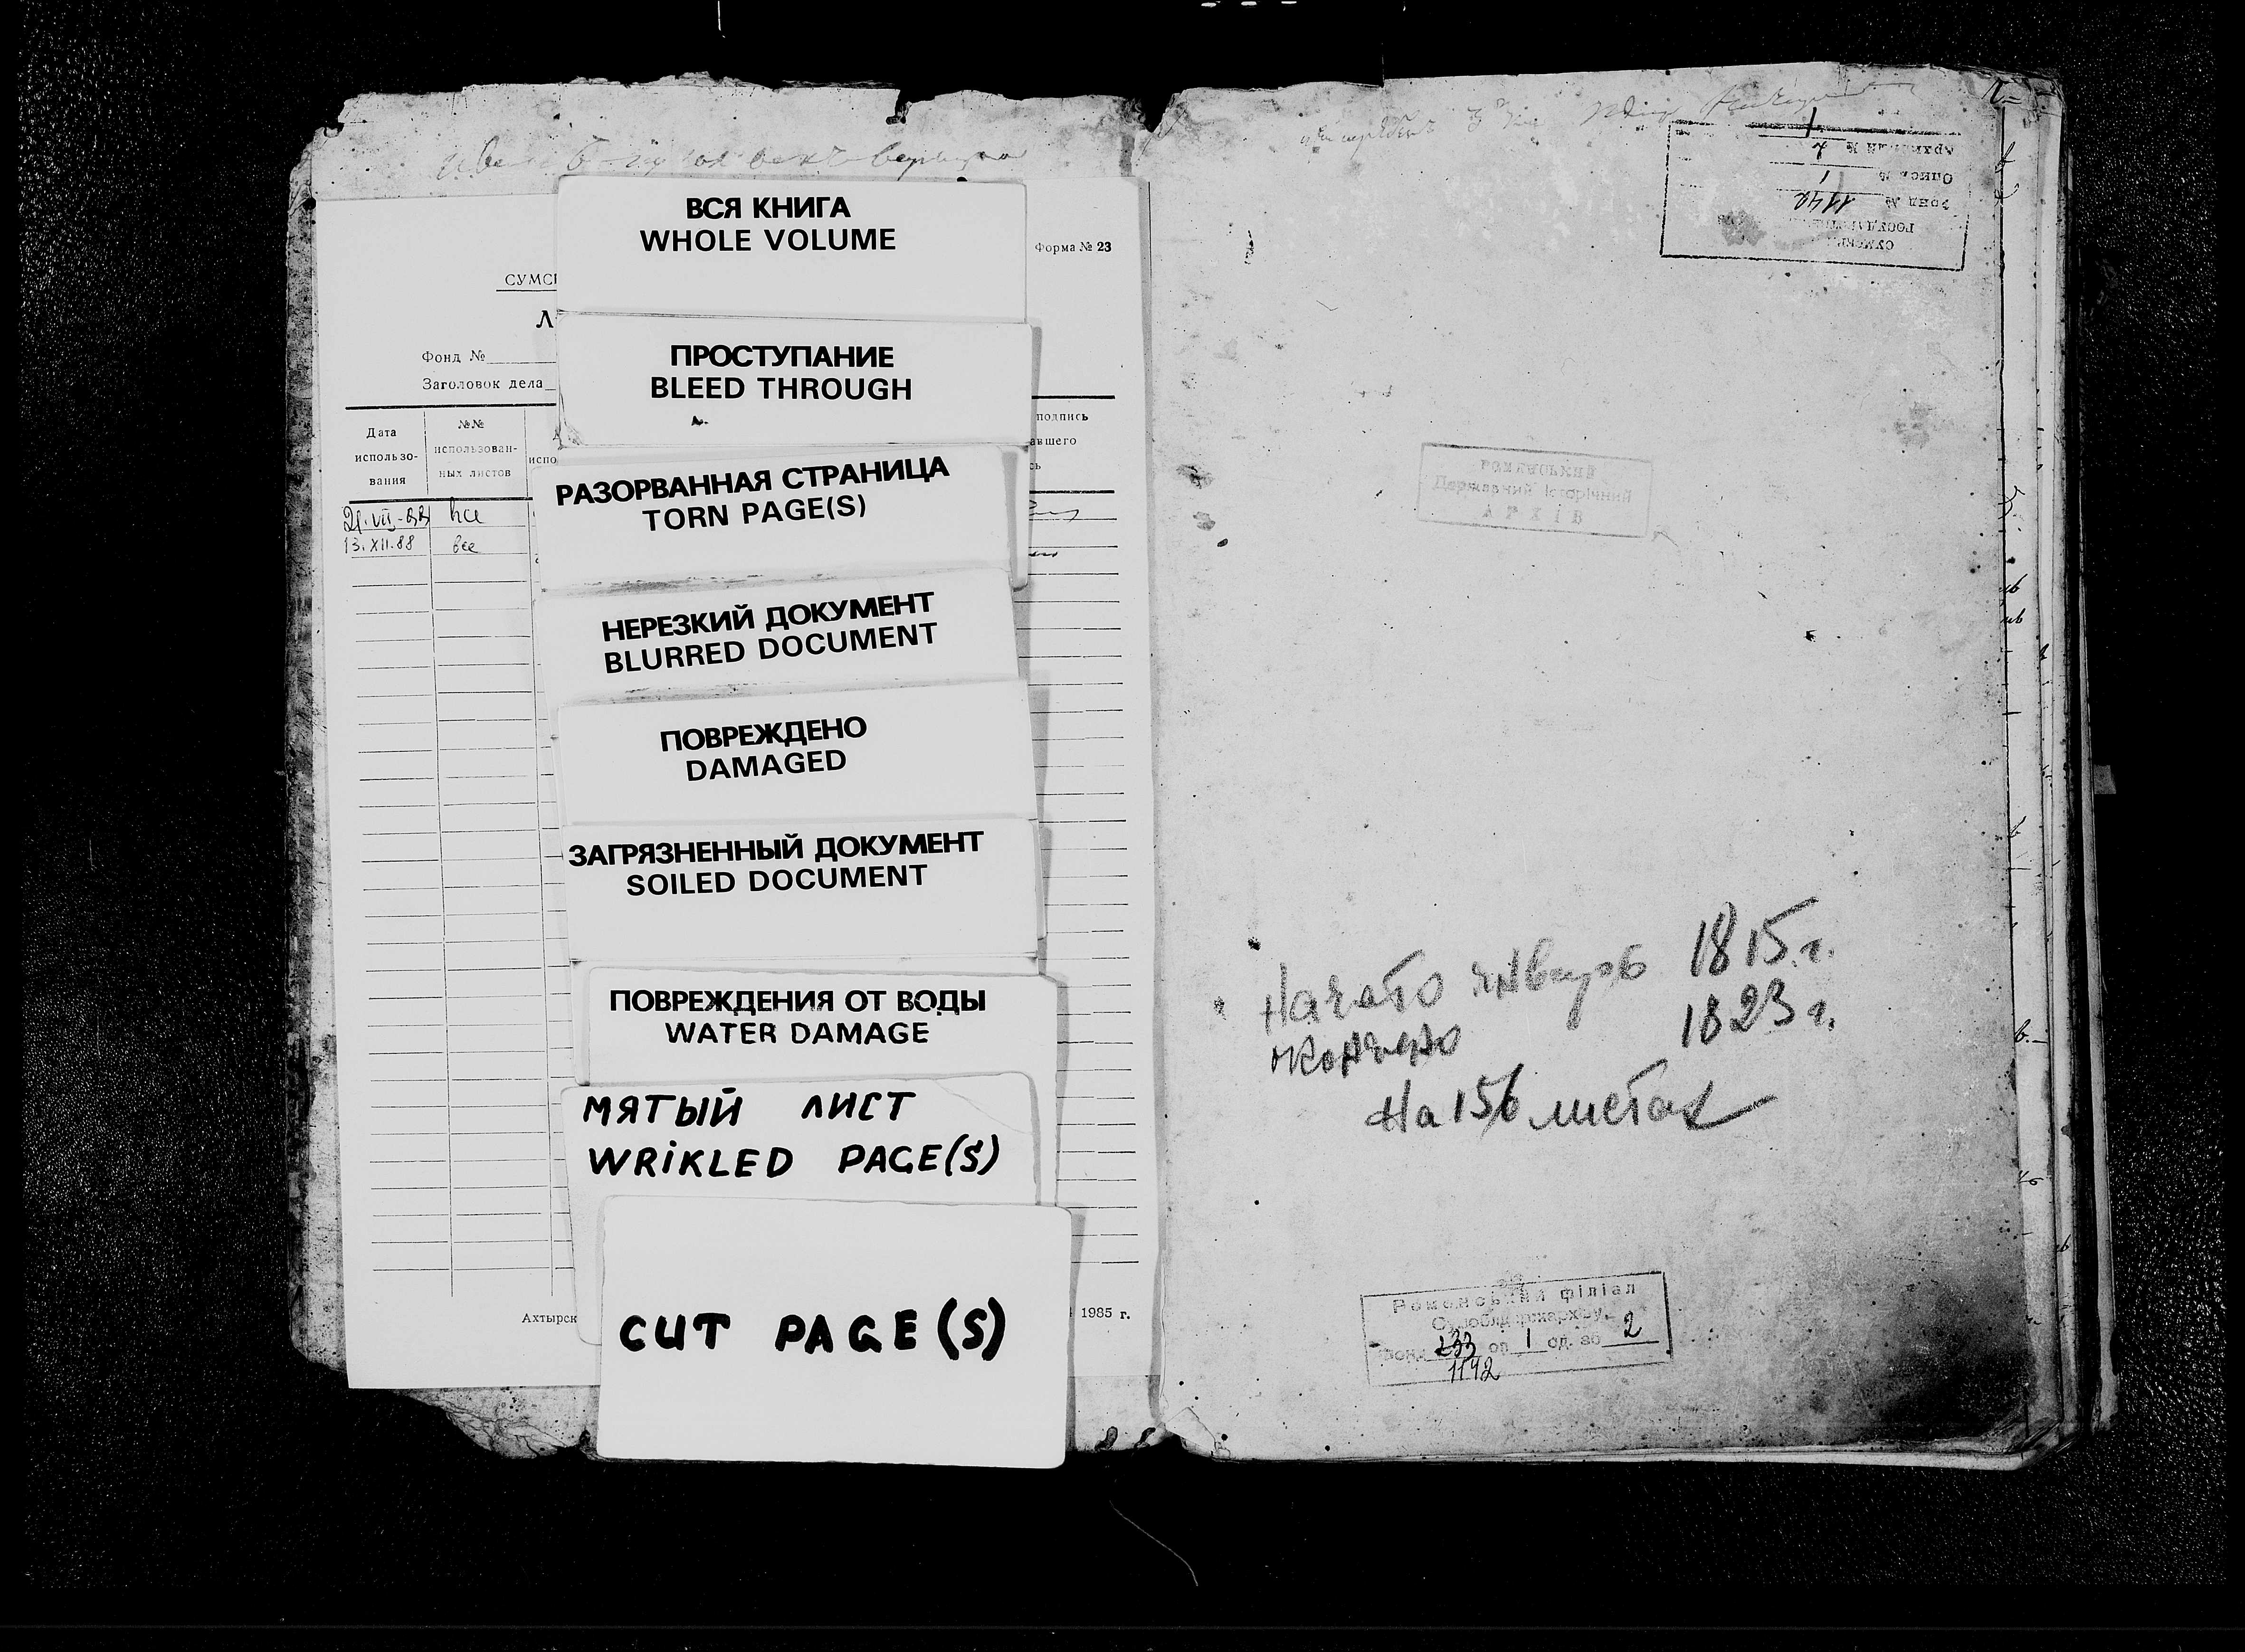 ВСЯ КНИГА
WHOLE VOLUME
Форма № 23
СУМС
Л
ПРОСТУПАНИЕ
BLEED THROUGH
Фонд №
Заголовок дела
Дата
использо-
вания
№№
использован-
ных листов
испо
подпись
авшего
сь
РАЗОРВАННАЯ СТРАНИЦА
TORN PAGE(S)
все
13.XII.88 все
НЕРЕЗКИЙ ДОКУМЕНТ
BLURRED DOCUMENT
ПОВРЕЖДЕНО
DAMAGED
ЗАГРЯЗНЕННЫЙ ДОКУМЕНТ
SOILED DOCUMENT
ПОВРЕЖДЕНИЯ ОТ ВОДЫ
WATER DAMAGE
МЯТЫЙ ЛИСТ
WRiKLED PAGE(S)
CUT PAGE(S)
Ахтырск
1985 г.
СУМСКИЙ
ГОСУДА
Фонд № 1142
Опись № 1
Архивный № 2
РОМЕНСЬКИЙ
Державний Історічний
АРХІВ
Начато январь 1815 г.
окончено 1823 г.
На 156 листах
Роменський філіал
Сумоблдержархіву
Фонд 233 оп 1 од. зб 2
1142